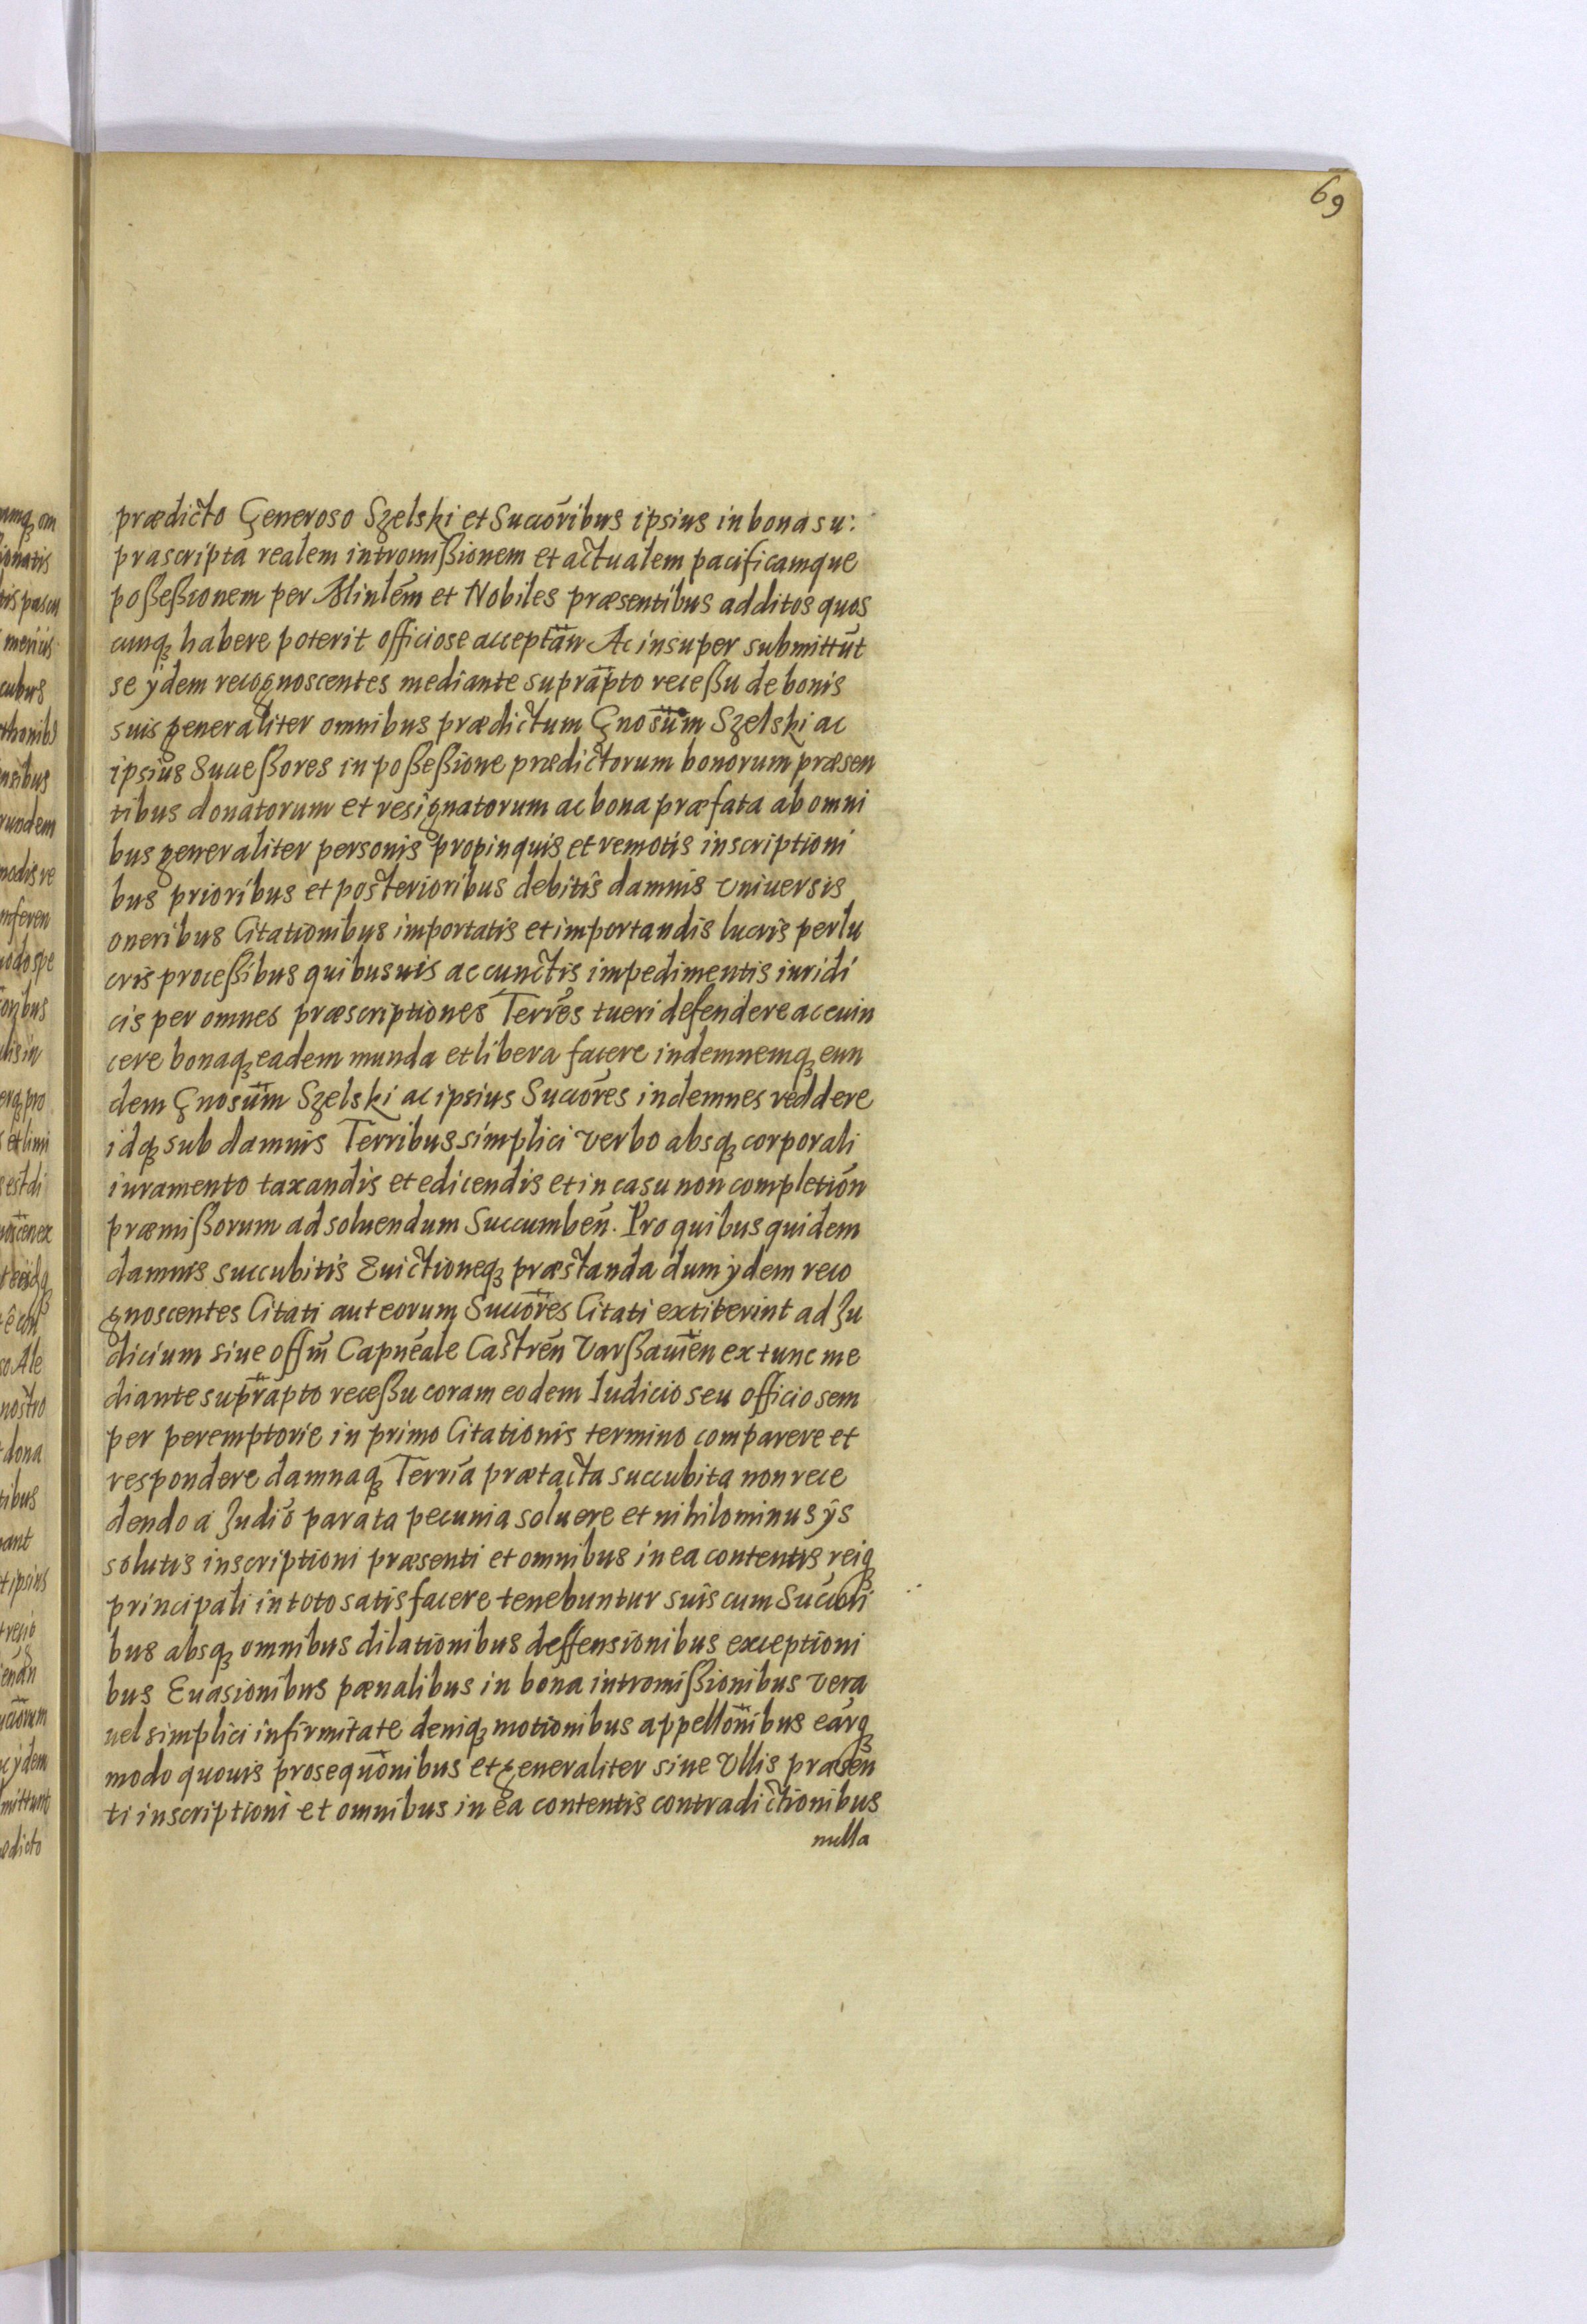 69
prædicto Generoso Szelski et Succōribus ipsius in bona su:
prascripta realem intromißionem et actualem pacificamque
poßeßionem per Minlēm et Nobiles præsentibus additos quos
cunq habere poterit officiose acceptān Ac insuper submittūt
se ÿdem recognoscentes mediante suprāpto receßu de bonis
suis generaliter omnibus prædictum Gnosūm Szelski ac
ipsius Succeßores in poßeßione prædictorum bonorum præsen
tibus donatorum et resignatorum ac bona præfata ab omni
bus generaliter personis propinquis et remotis inscriptioni
bus prioribus et posterioribus debitis damnis vniuersis
oneribus Citationibus importatis et importandis lucris perlu
cris proceßibus quibusuis ac cunctis impedimentis iuridi
cis per omnes præscriptiones Terrēs tueri defendere ac euin
cere bonaq eadem munda et libera facere indemnemq eun
dem Gnosūm Szelski ac ipsius Succōres indemnes reddere
idq sub damnis Terribus simplici verbo absq corporali
iuramento taxandis et edicendis et in casu non completiōn
præmißorum ad soluendum Succumbeñ. Pro quibus quidem
damnis succubitis Euictioneq præstanda dum ÿdem reco
gnoscentes Citati aut eorum Succōres Citati extiterint ad Ju
dicium siue offm̄ Capnēale Castrēn Varßauiēn ex tunc me
diante suprāpto receßu coram eodem Iudicio seu officio sem
per peremptorie in primo Citationis termino comparere et
respondere damnaq Terrīa prætacta succubita non rece
dendo a Judiō parata pecunia soluere et nihilominus ÿs
solutis inscriptioni præsenti et omnibus in ea contentis reiq
principali in toto satisfacere tenebuntur suis cum Succōri
bus absq omnibus dilationibus deffensionibus exceptioni
bus Euasionibus pænalibus in bona intromißionibus vera
uel simplici infirmitate deniq motionibus appellōnibus eārq
modo quouis prosequōnibus et generaliter siue Vllis præsen
ti inscriptioni et omnibus in ea contentis contradictionibus
nulla